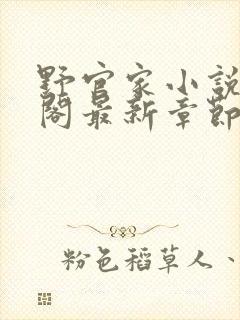 野官家小說
閣最新章節
粉色稻草人、